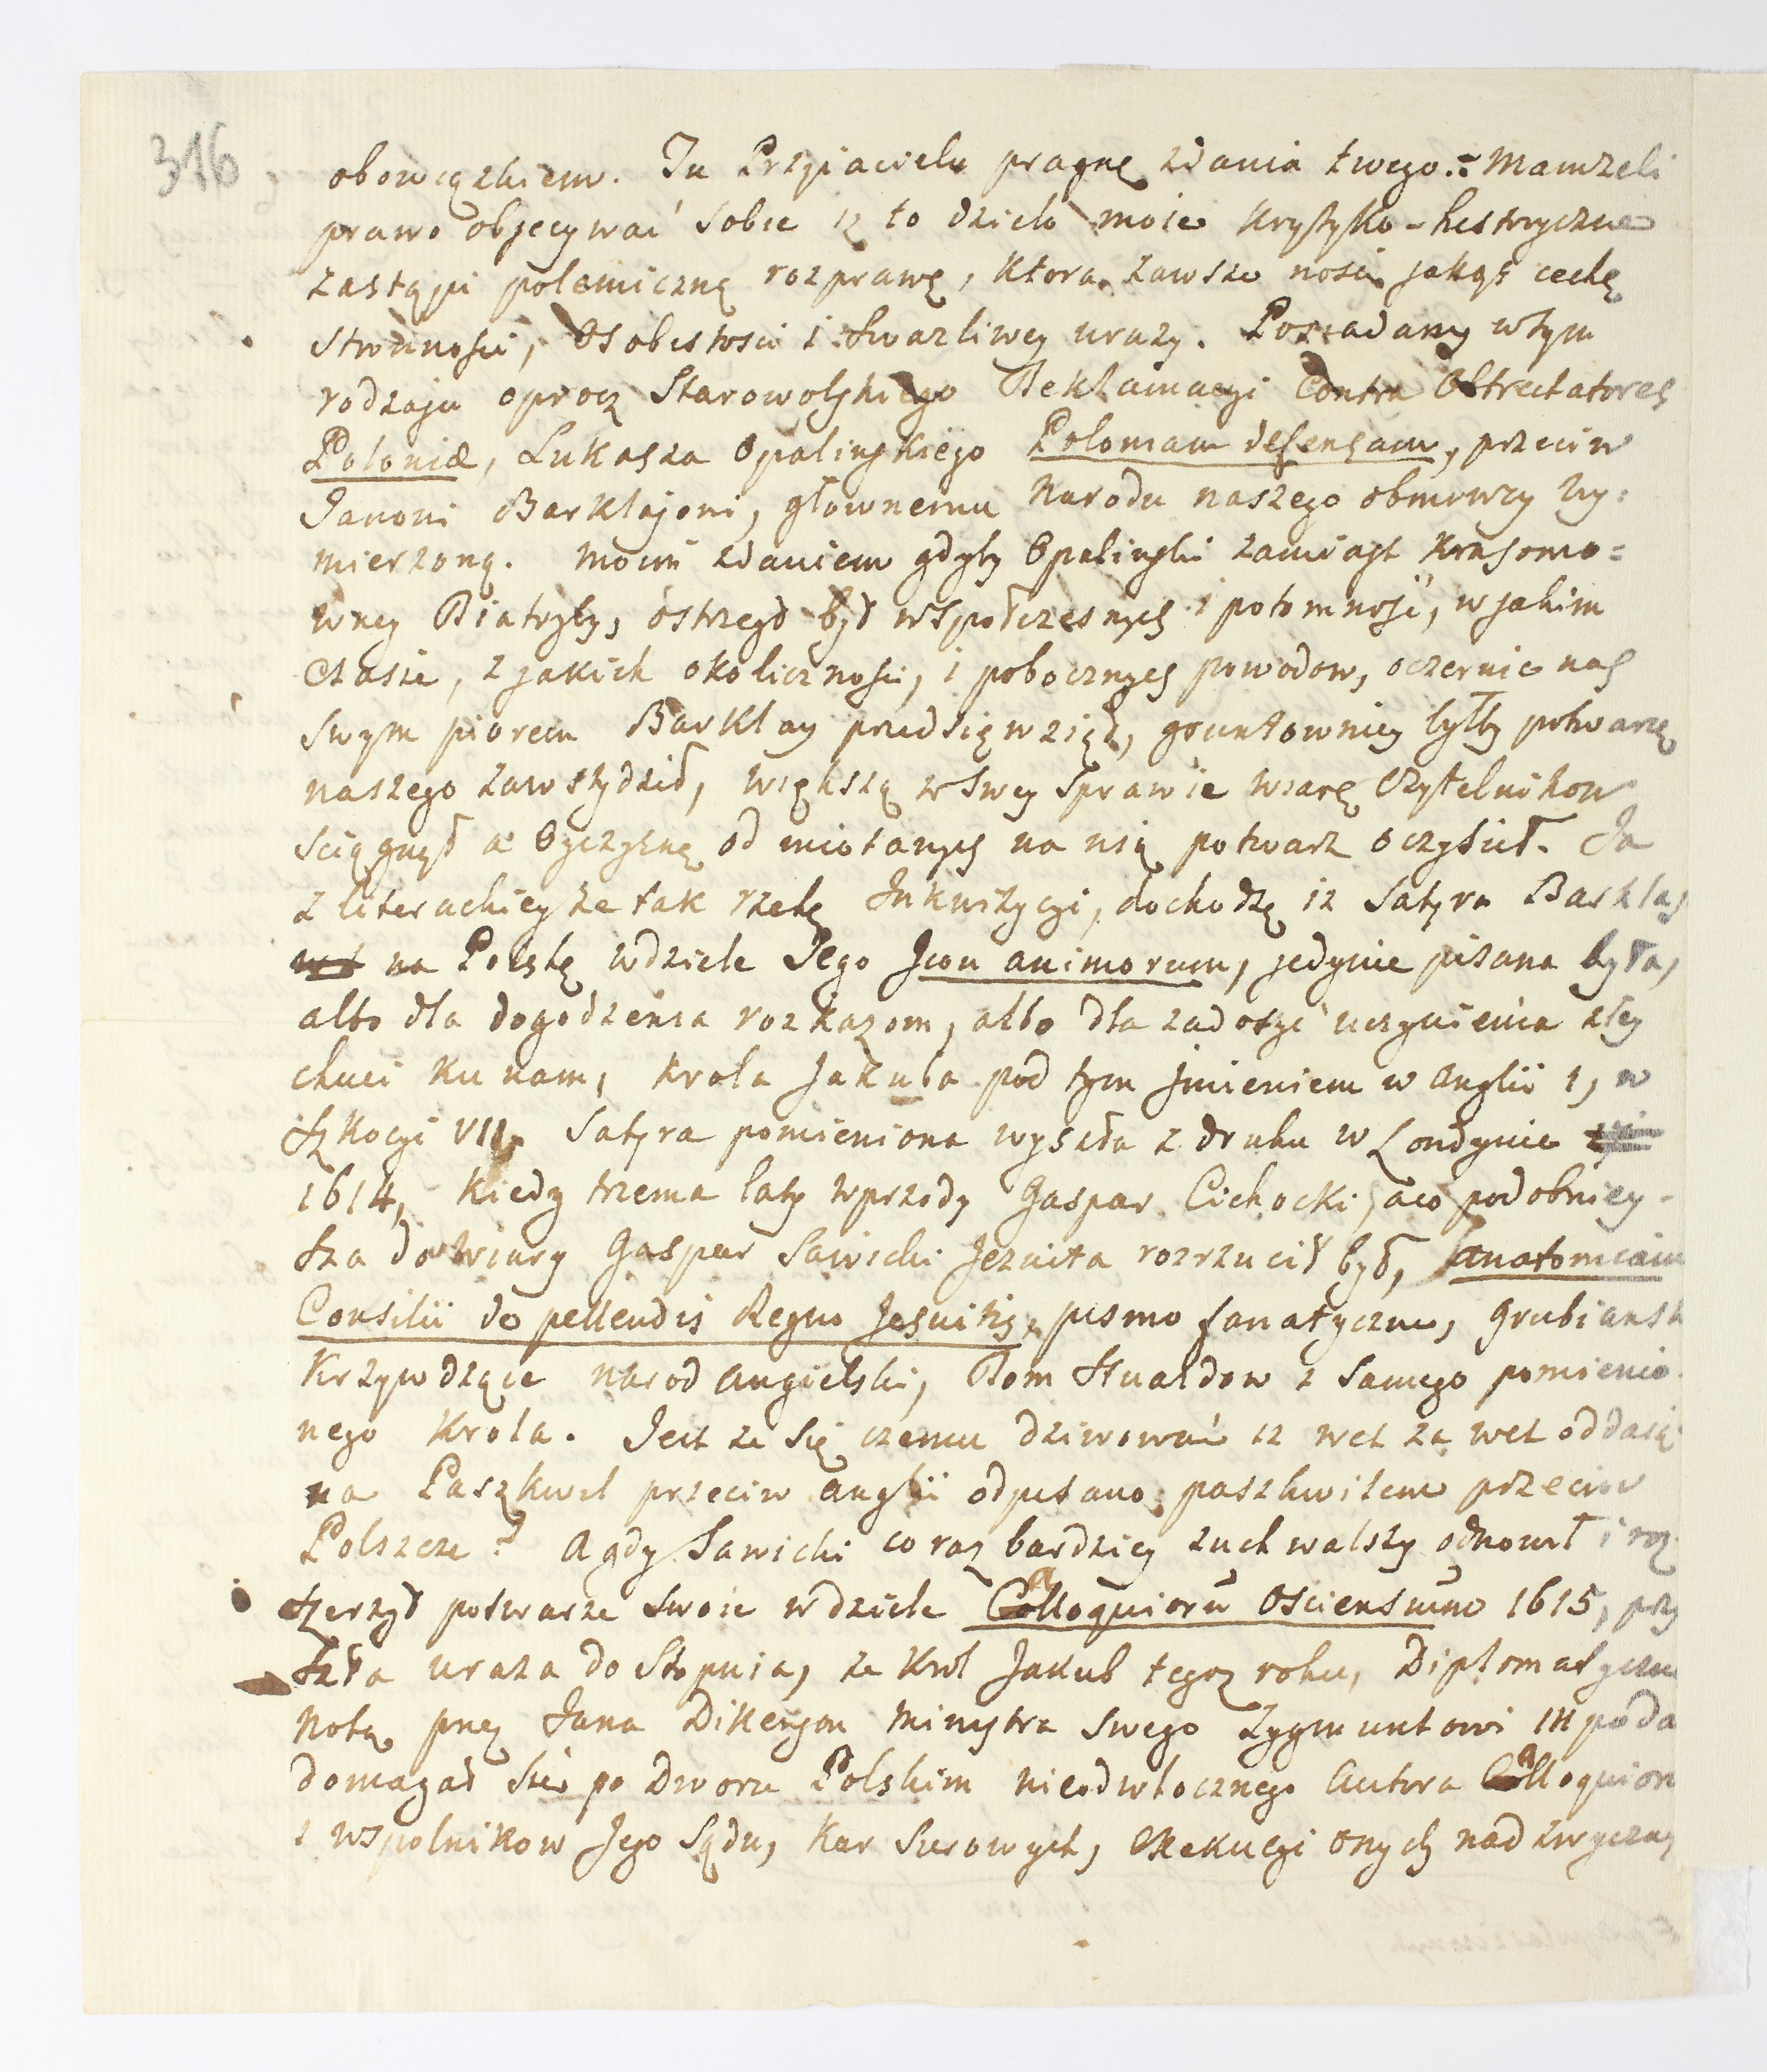 316
obowiązkiem. Tu Przyjacielu pragnę zdania twego.= Mamżeli
prawo objecywać sobie iż to dzieło moie krytyko-historyczne
zastąpi polemiczną rozprawę, ktora zawsze nosi jakąś cechę
stronności, osobistości i swarliwey urazy. Posiadamy wtym
rodzaju oprocz Starowolskiego Deklamacyi Contra Obtrectatores
Poloniæ, Lukasza Opalinskiego Poloniam defensam, przeciw
Janowi Barklajowi, głownemu Narodu naszego obmowcy wy=
mierzoną. Moim zdaniem gdyby Opalinski zamiast krasomo=
wney Diatryby, ostrzegł był wspołczesnych i potomność, w jakim
czasie, z jakich okoliczności, i pobocznych powodow, oczernić nas
swym piorem Barklay przedsięwziął, gruntowniey byłby potwarcę
naszego zawstydził, większą w swey sprawie wiarę Czytelnikow
sciągnął a Oyczyznę od miotanych na nią potwarz oczyścił. Ja
z literackiey że tak rzekę Inkwizycyi, dochodzę iż Satyra Barklaj
na Polskę w dziele Jego Icon animorum, jedynie pisana była,
albo dla dogodzenia rozkazom, albo dla zadosyć uczynienia złey
chuci ku nam, Krola Jakuba pod tym jmieniem w Anglii I, w
Szkocyi VII. Satyra pomieniona wyszła z druku w Londynie
1614, kiedy trzema laty wprzody Gaspar Cichocki, aco podobniey-
sza do wiary Gaspar Sawicki Jezuita rozrzucił był, Anatomiam
Consilii de pellendis Regno Jesuitis, pismo fanatyczne, grubiansk
krzywdzące narod angielski, Dom Stuardow i samego pomienio
nego Krola. Jest że się czemu dziwować iż wet za wet oddaią
na Paszkwil przeciw Anglii odpisano paszkwilem przeciw
Polszcze? A gdy Sawicki co raz bardziey zuchwalszy odnowił i roz
szerzył potwarze swoie w dziele Colloquiorũ Osciensium 1615, przy
szła uraza do stopnia, że Krol Jakub tegoż roku, Diplomatyczn
notą przez Jana Dikenson Ministra swego Zygmuntowi III poda
domagał się po Dworu Polskim nieodwłocznego Autora Alloquior
i wspolnikow Jego sądu, kar surowych, Exekucyi onych nadzwyczay